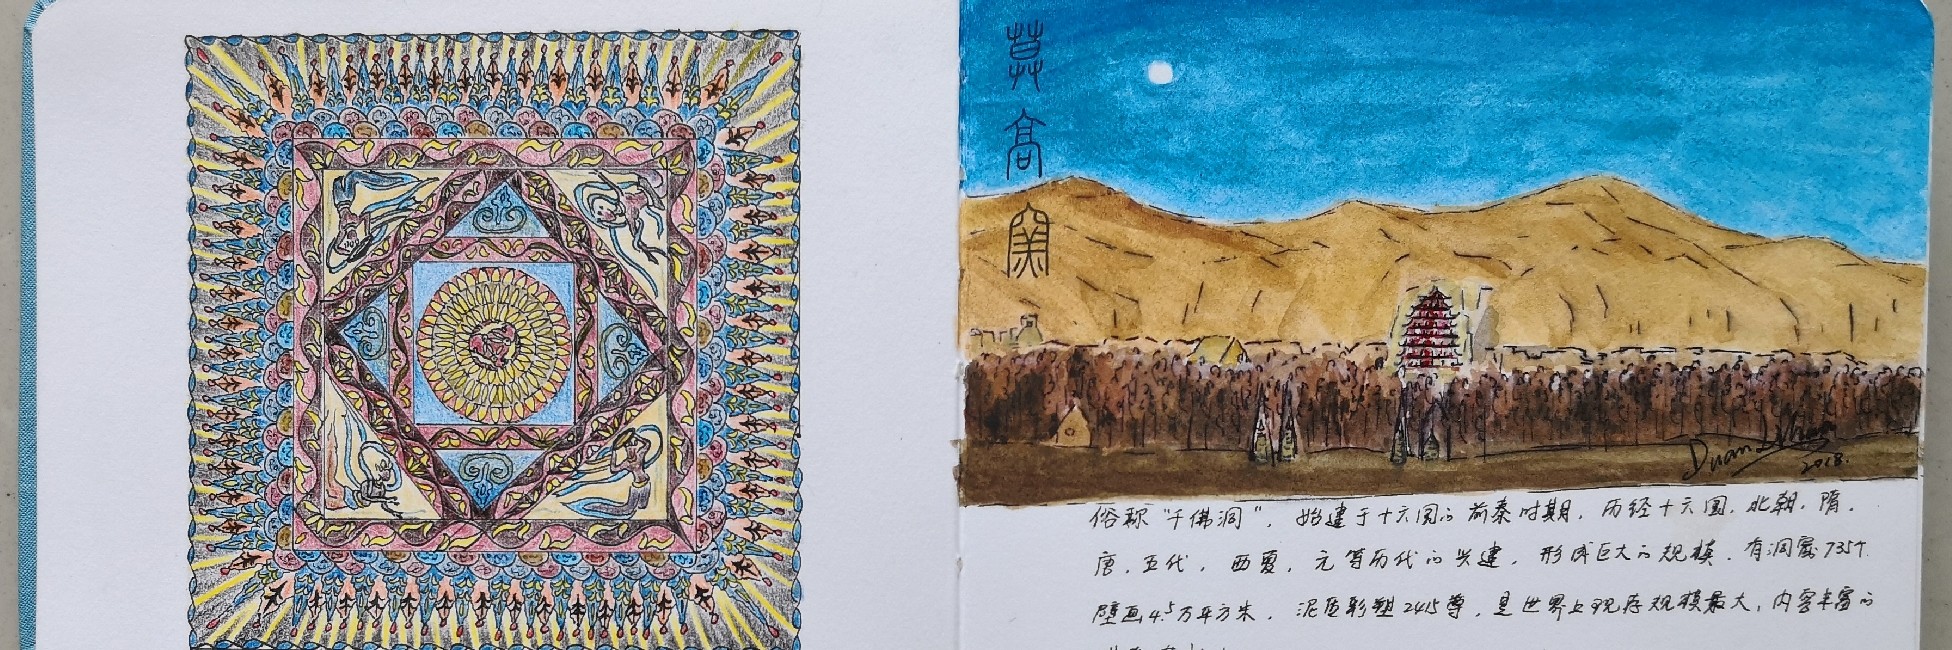 莫高窟
俗称"千佛洞"，始建于十六国的前秦时期，历经十六国、北朝、隋、
唐、五代、西夏、元等历代的兴建，形成巨大的规模，有洞窟735个，
壁画4.5万平方米，泥质彩塑2415尊，是世界上现存规模最大，内容丰富的
Duan
2018.